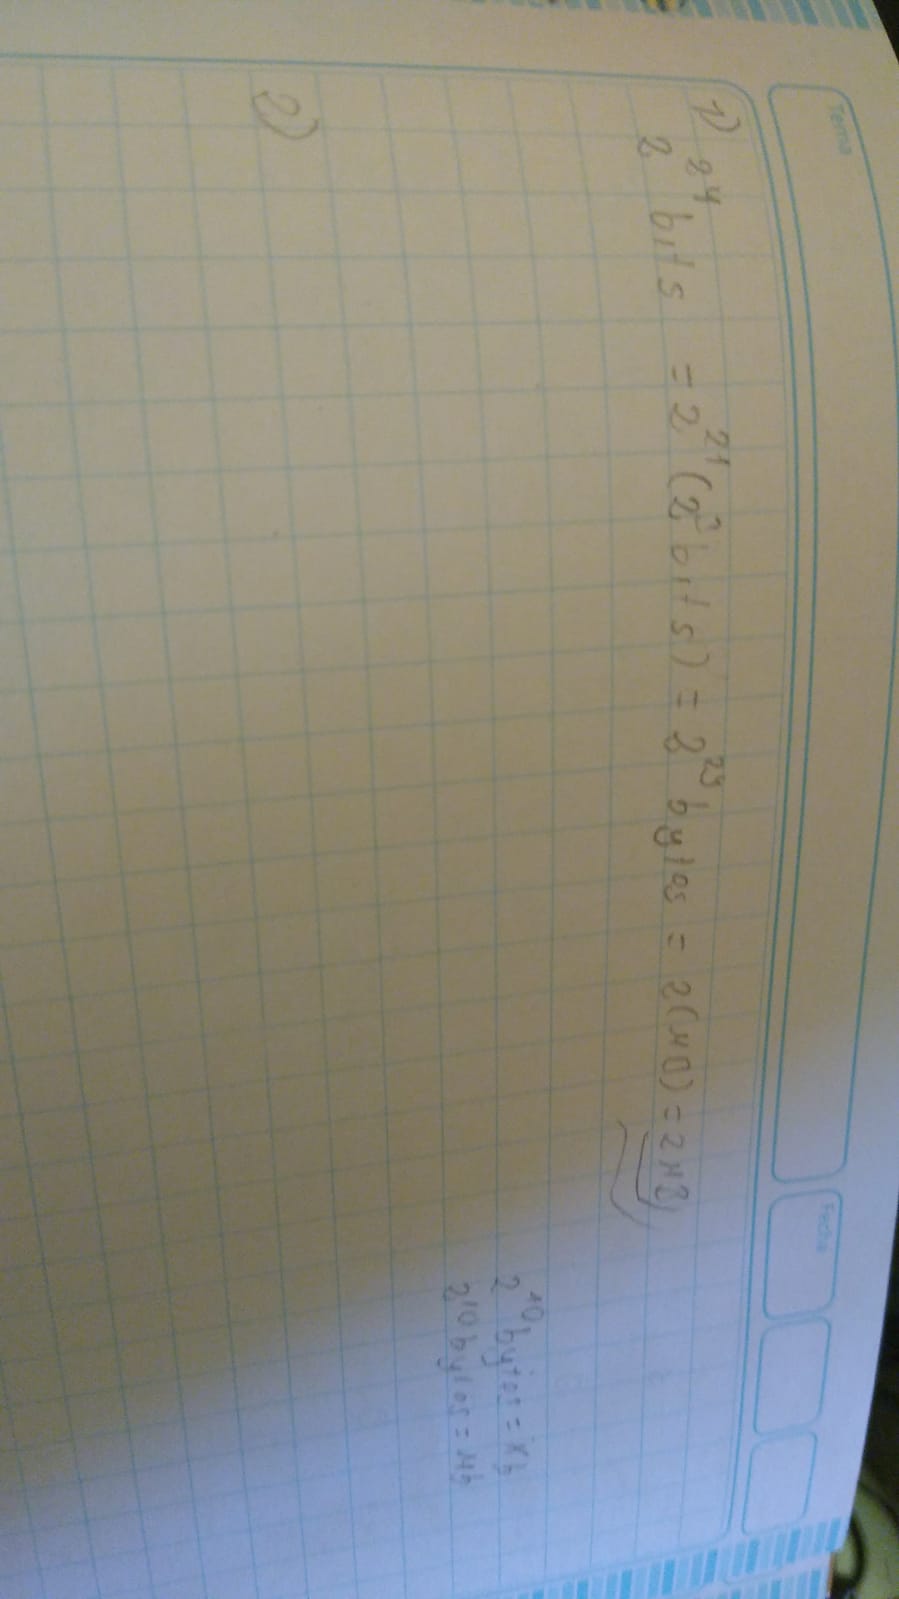 Tema
Fecha
1) 2²⁴ bits = 2²¹(2³ bits) = 2²³ bytes = 2(MB) = 2MB
2¹⁰ bytes = Kb
2¹⁰ bytes = Mb
2)